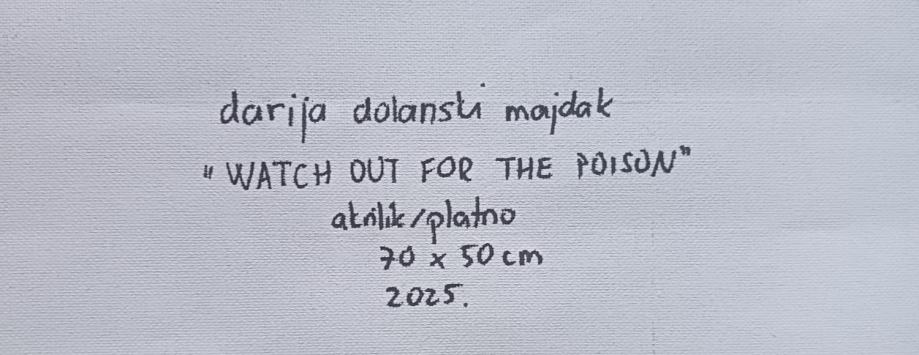 darija dolanski majdak
"WATCH OUT FOR THE POISON"
akrilik/platno
70 x 50 cm
2025.